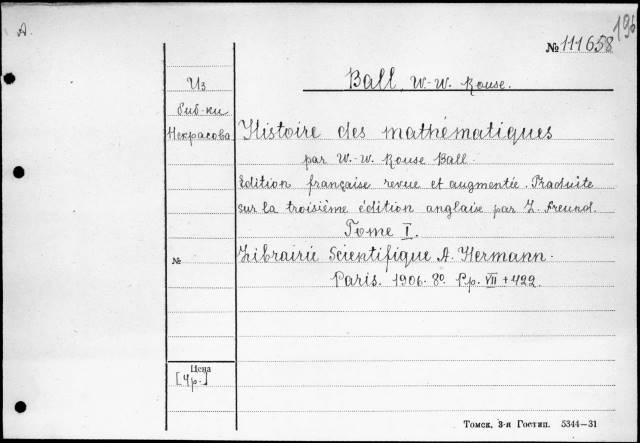 A.
196
№ 111658
Ball, W.-W. Rouse.
Из
биб-ки
Некрасова
Histoire des mathématiques
par W.-W. Rouse Ball.
Edition française revue et augmentée. Traduite
sur la troisième édition anglaise par L. Freund.
Tome I.
№
Librairie Scientifique A. Hermann.
Paris. 1906. 8º. Pp. VII + 422.
Цена
[4р.]
Томск, 3-я Гостип. 5344—31